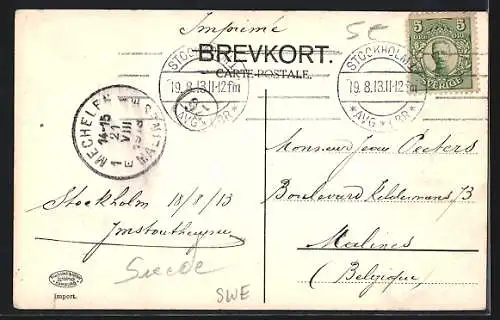 Imprimé
5€
BREVKORT.
CARTE-POSTALE.
STOCKHOLM
19.8.13.11-12 fm
AVG LBR
STOCKHOLM
19.8.13.11-12 fm
*AVG LBR*
5 5
SVERIGE
MECHELEN
14-15
21
VIII
1 E
MALINES
Monsieur Jean Peeters
Boulevard Keldermans 13
Malines
(Belgique)
Stockholm 18/8/13
Suede
SWE
Import.